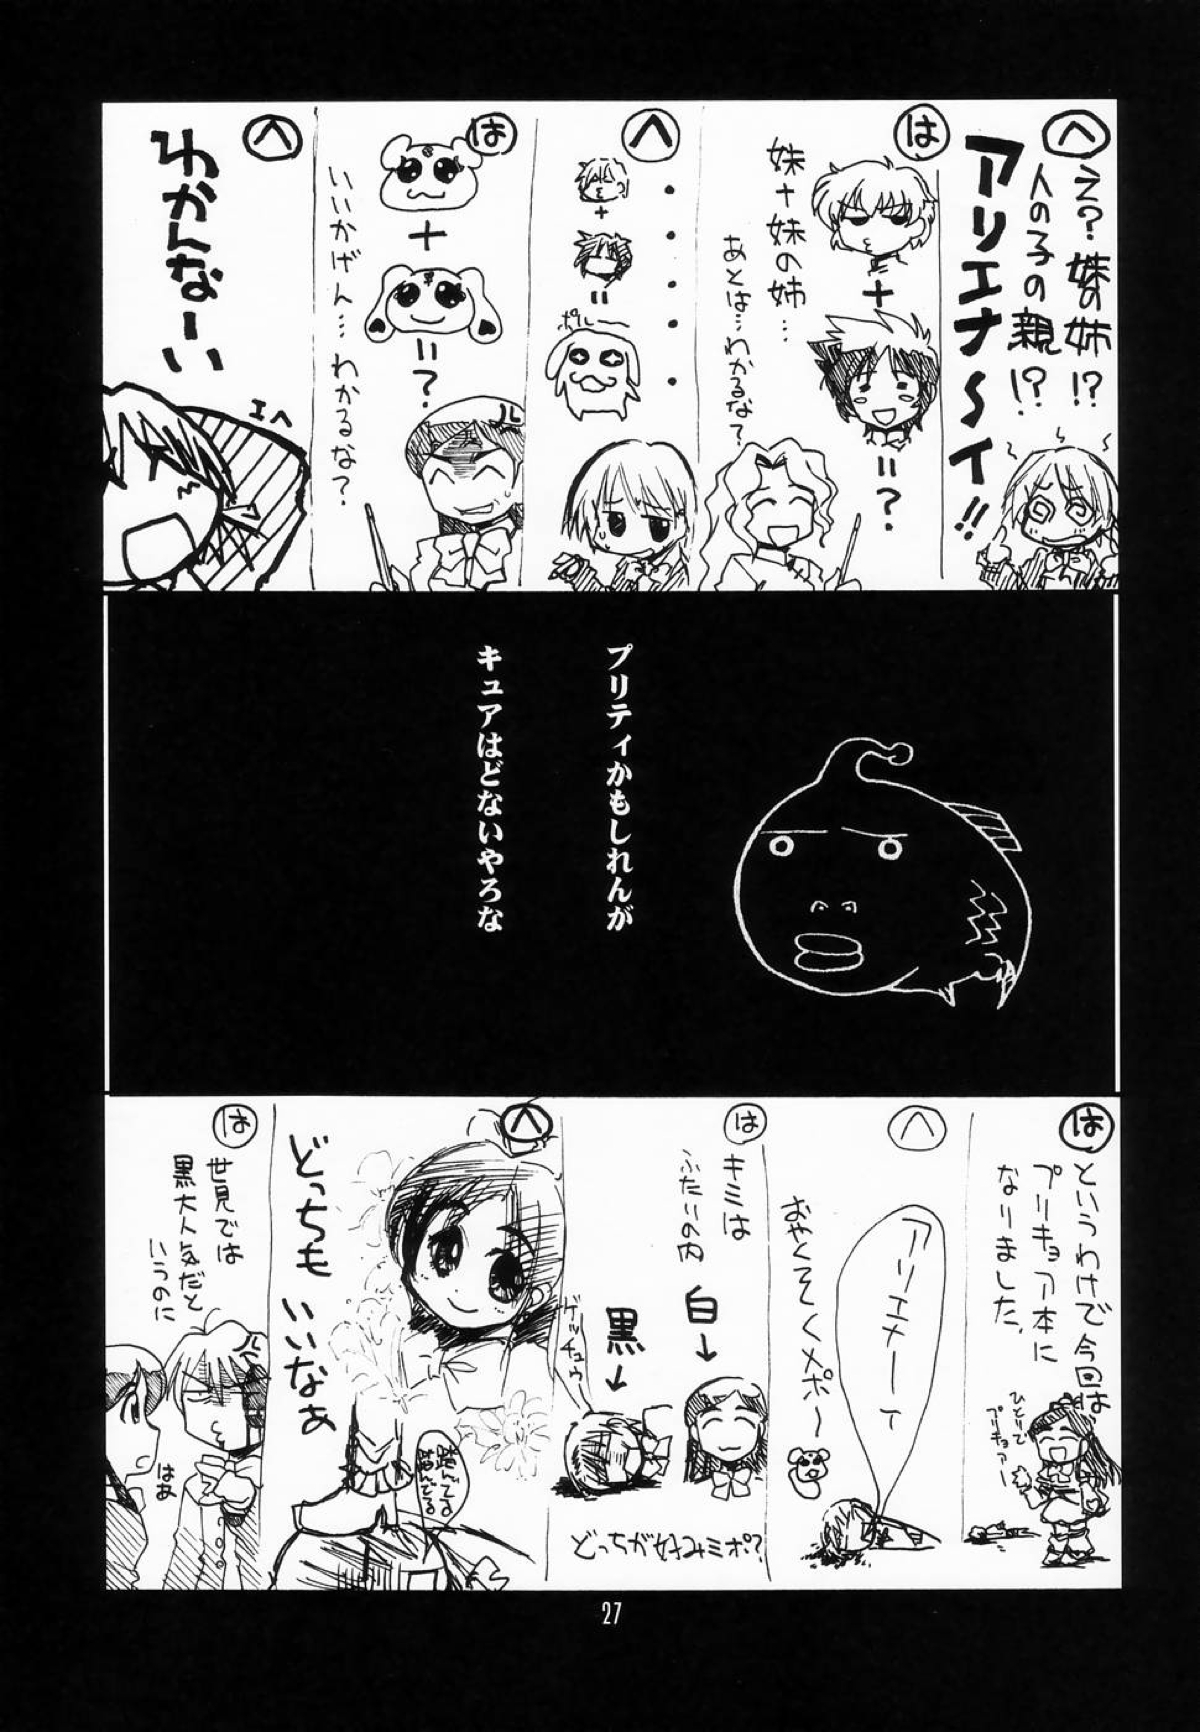 へ
え?妹の姉!?
人の子の親!?
アリエナ〜イ!!
は
+
=?
妹+妹の姉…
あとは…わかるな?
へ
・・・・・・
+
=
ポルー
は
+
=?
いいかげん…わかるな?
へ
わかんなーい
エヘ
プリティかもしれんが
キュアはどないやろな
は
というわけで今回は、
プリキュア本に
なりました。
ひとりで
プリキュアー
へ
アリエナーイ
おやくそくメポ〜
は
キミは
ふたりの内
白→
黒→
どっちが好みミポ?
へ
ゲッチュウ
どっちもいいなぁ
踏んでる
踏んでる
は
世見では
黒大人気だと
いうのに
はあ
27